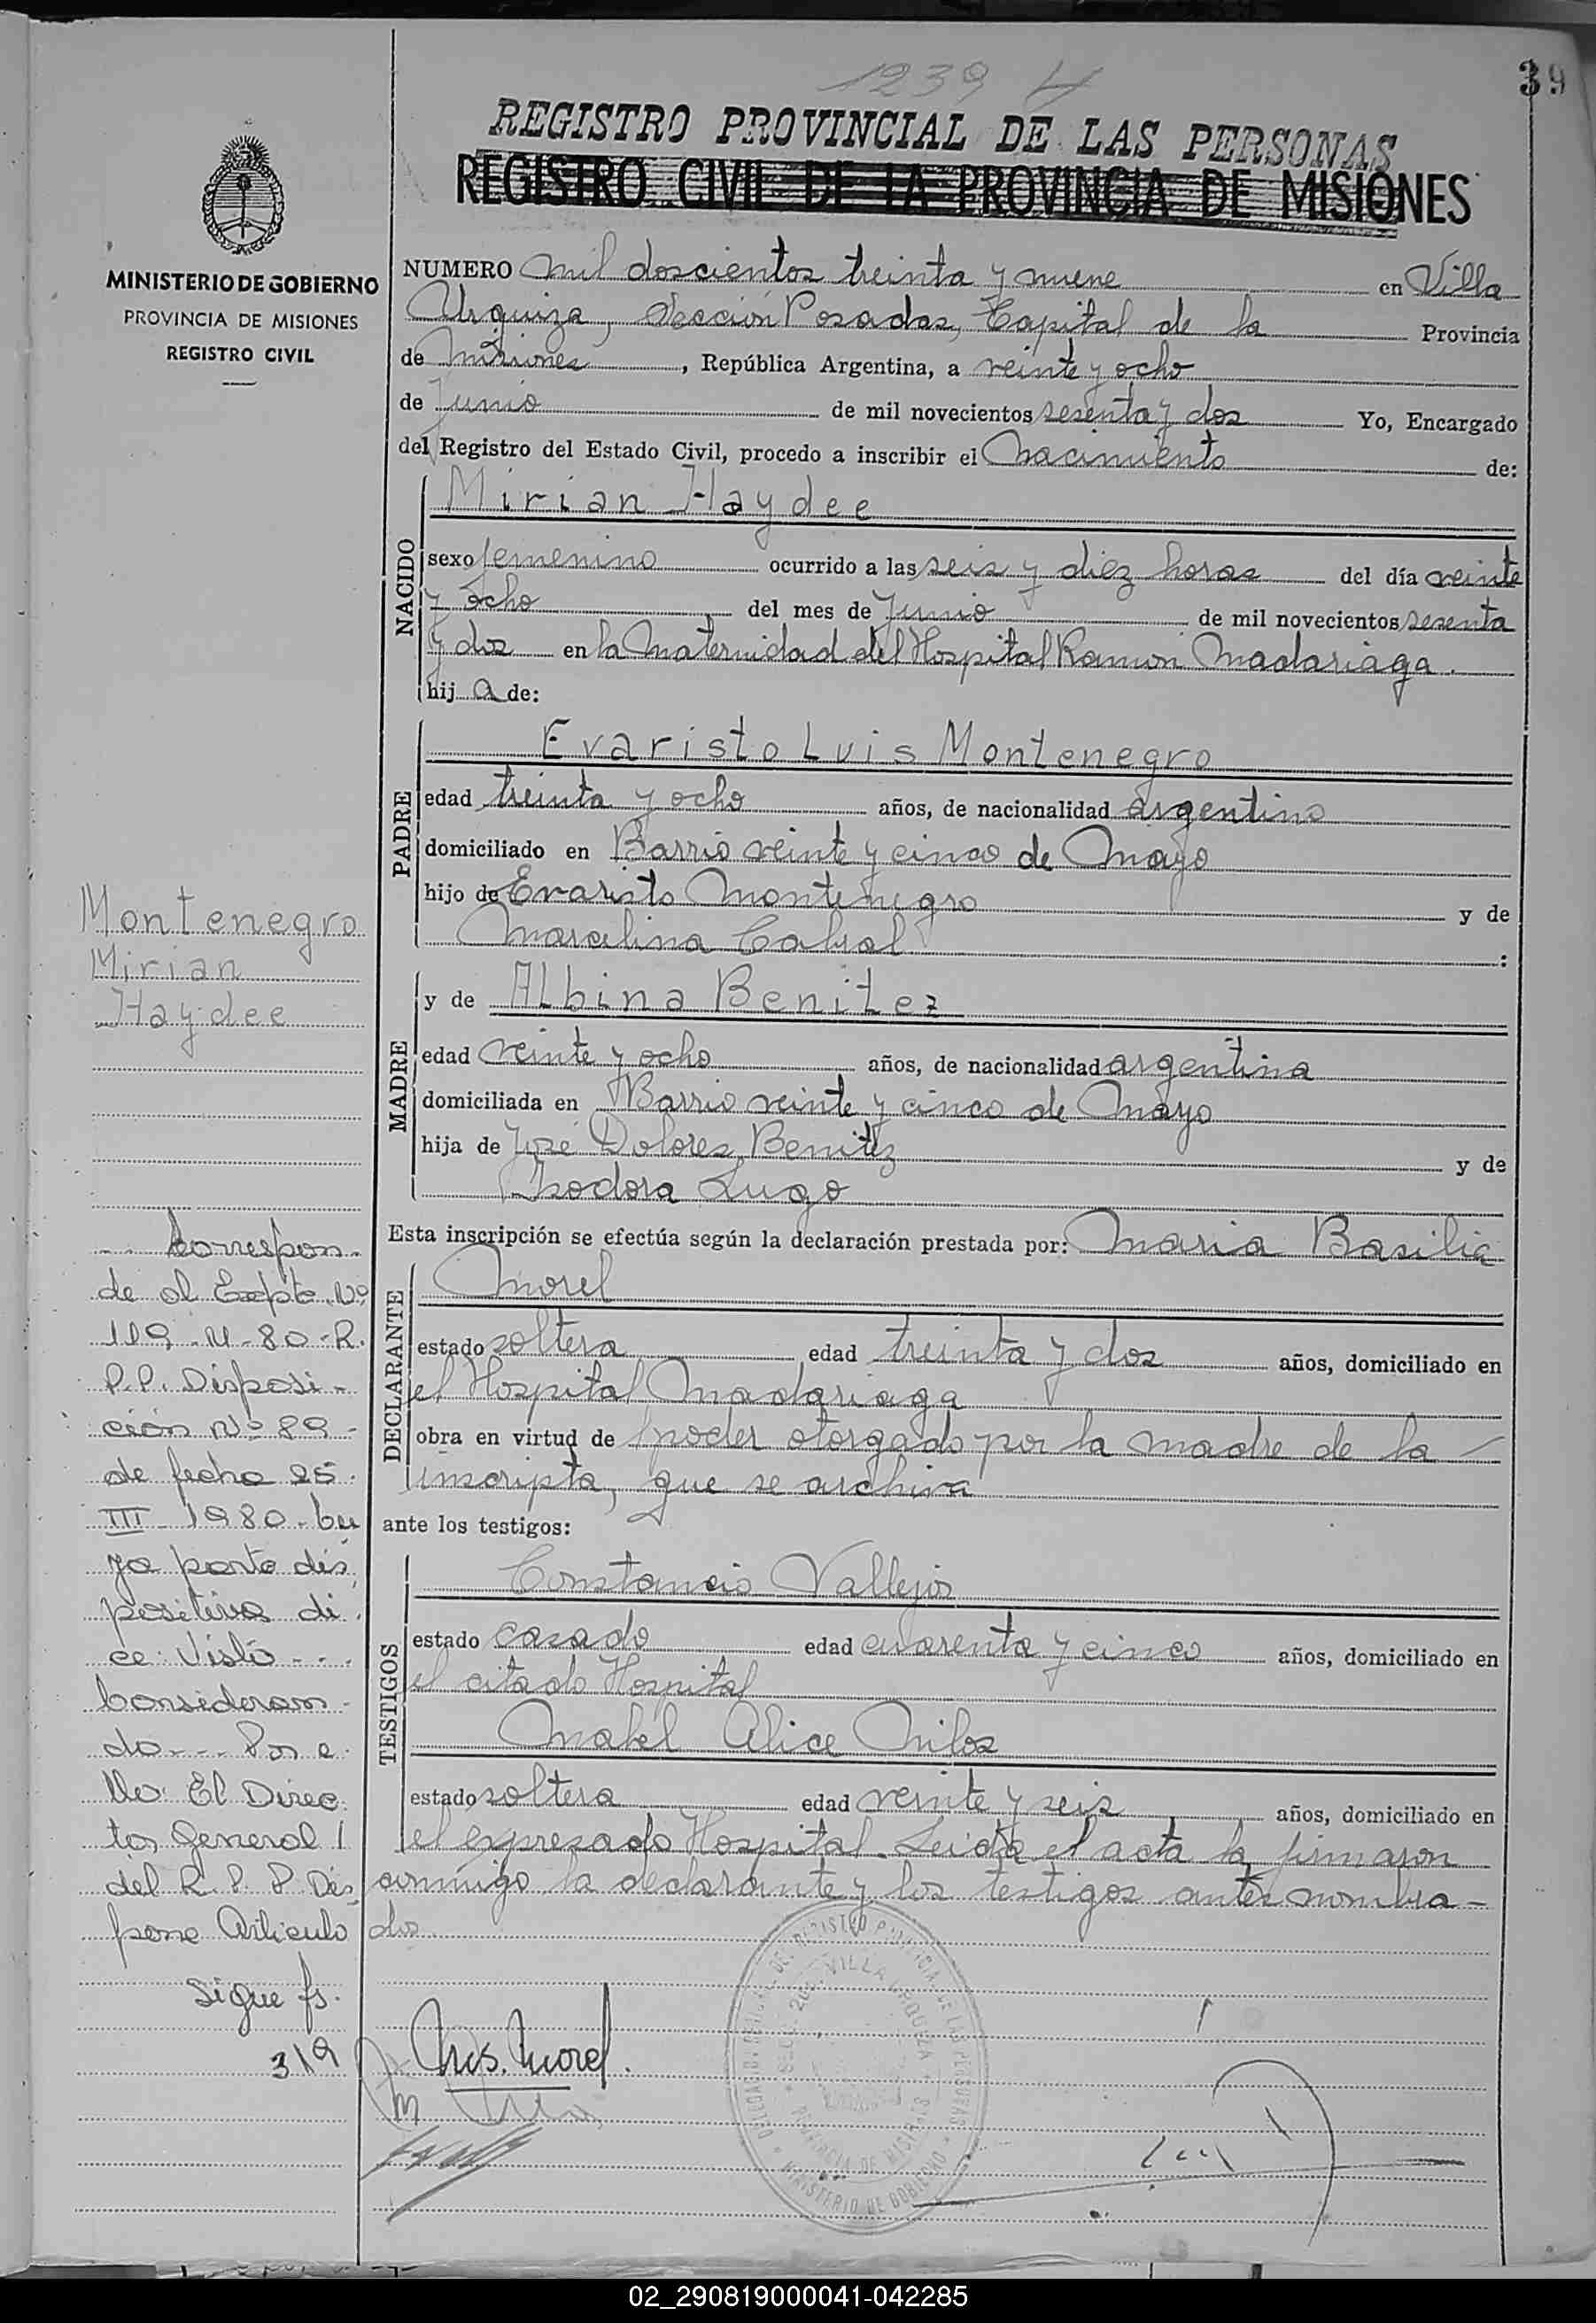 1239
39
REGISTRO PROVINCIAL DE LAS PERSONAS
REGISTRO CIVIL DE LA PROVINCIA DE MISIONES
MINISTERIO DE GOBIERNO
PROVINCIA DE MISIONES
REGISTRO CIVIL
NUMERO mil doscientos treinta y nueve en Villa
Urquiza, Sección Posadas, Capital de la Provincia
de Misiones, República Argentina, a veinte y ocho
de Junio de mil novecientos sesenta y dos Yo, Encargado
del Registro del Estado Civil, procedo a inscribir el Nacimiento de:
NACIDO
Mirian Haydee
sexo femenino ocurrido a las seis y diez horas del día veinte
y ocho del mes de Junio de mil novecientos sesenta
y dos en la Maternidad del Hospital Ramón Madariaga.
hij a de:
PADRE
Evaristo Luis Montenegro
edad treinta y ocho años, de nacionalidad argentino
domiciliado en Barrio veinte y cinco de Mayo
hijo de Evaristo Montenegro y de
Marcelina Cabral :
MADRE
y de Albina Benitez
edad veinte y ocho años, de nacionalidad argentina
domiciliada en Barrio veinte y cinco de Mayo
hija de José Dolores Benitez y de
Isodora Lugo
Esta inscripción se efectúa según la declaración prestada por: Maria Basilia
DECLARANTE
Morel
estado soltera edad treinta y dos años, domiciliado en
el Hospital Madariaga
obra en virtud de poder otorgado por la madre de la
inscripta, que se archiva
ante los testigos:
TESTIGOS
Constancio Vallejos
estado casado edad cuarenta y cinco años, domiciliado en
el citado Hospital
Mabel Alice
estado soltera edad veinte y seis años, domiciliado en
el expresado Hospital. Leida el acta la firmaron
conmigo la declarante y los testigos antes nombra-
dos
Montenegro
Mirian
Haydee
Correspon-
de al Expte Nº
119-M-80-R.
P.P. Disposi-
ción Nº 89-
de fecha 25-
III-1980-Cu
ya parte dis
positiva di
ce: Visto---
Consideran-
do--- Por e-
llo: El Direc
tor General
del R.P.P Dis
pone Articulo
Sigue fs.
319
Mrs. Morel.
VILLA URQUIZA
PROVINCIA DE MISIONES
MINISTERIO DE GOBIERNO
02_290819000041-042285